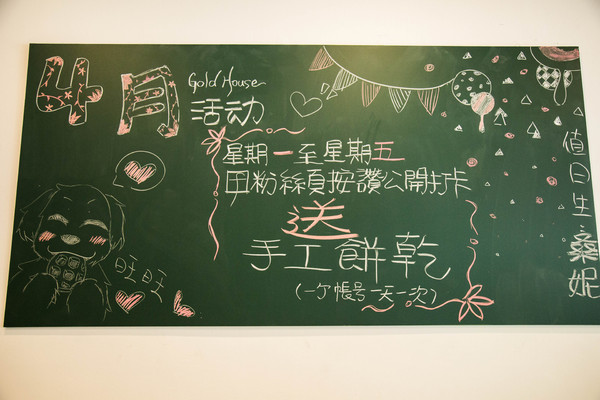 4月
Gold House
活动
星期一至星期五
甲粉絲頁按讚公開打卡
送
手工餅乾
(一个帳号一天一次)
旺旺
值日生:桑妮